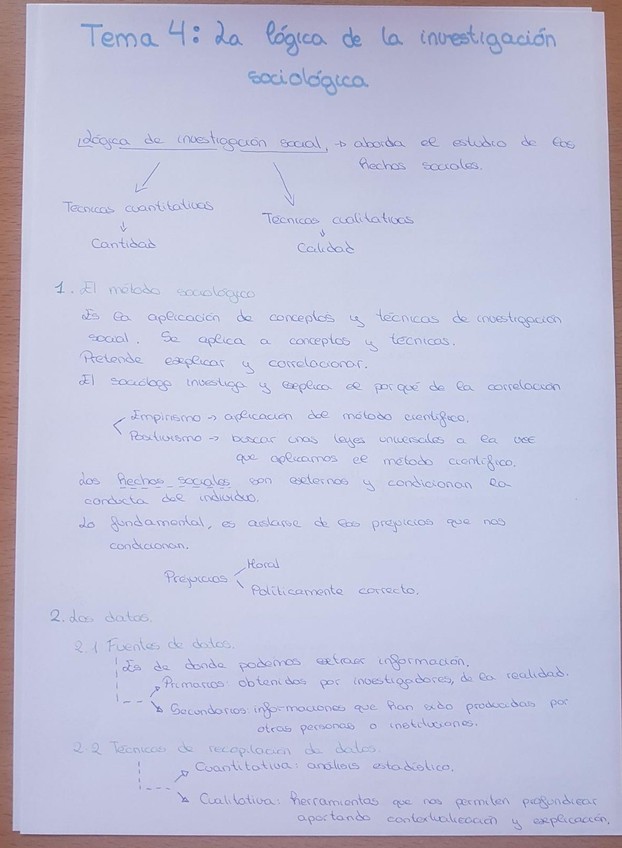 Tema 4: La lógica de la investigación
sociológica
Lógica de investigación social, → aborda el estudio de los
hechos sociales.
Técnicas cuantitativas
Técnicas cualitativas
↓
↓
Cantidad
Calidad
1. El método sociológico
Es la aplicación de conceptos y técnicas de investigación
social. Se aplica a conceptos y técnicas.
Pretende explicar y correlacionar.
El sociólogo investiga y explica el porqué de la correlación
Empirismo → aplicación del método científico.
Positivismo → buscar unas leyes universales a la vez
que aplicamos el método científico.
Los hechos sociales son externos y condicionan la
conducta del individuo.
Lo fundamental, es aislarse de los prejuicios que nos
condicionan.
Moral
Prejuicios
Políticamente correcto.
2. Los datos.
2.1 Fuentes de datos.
Es de donde podemos extraer información.
Primarios: obtenidos por investigadores, de la realidad.
Secundarios: informaciones que han sido producidas por
otras personas o instituciones.
2.2 Técnicas de recopilación de datos.
Cuantitativa: análisis estadístico.
Cualitativa: herramientas que nos permiten profundizar
aportando contextualización y explicación.